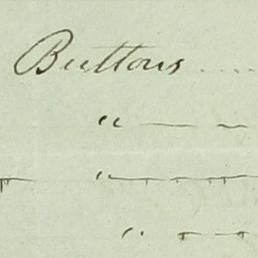 Buttons ....
" — –
" — — —
" - -